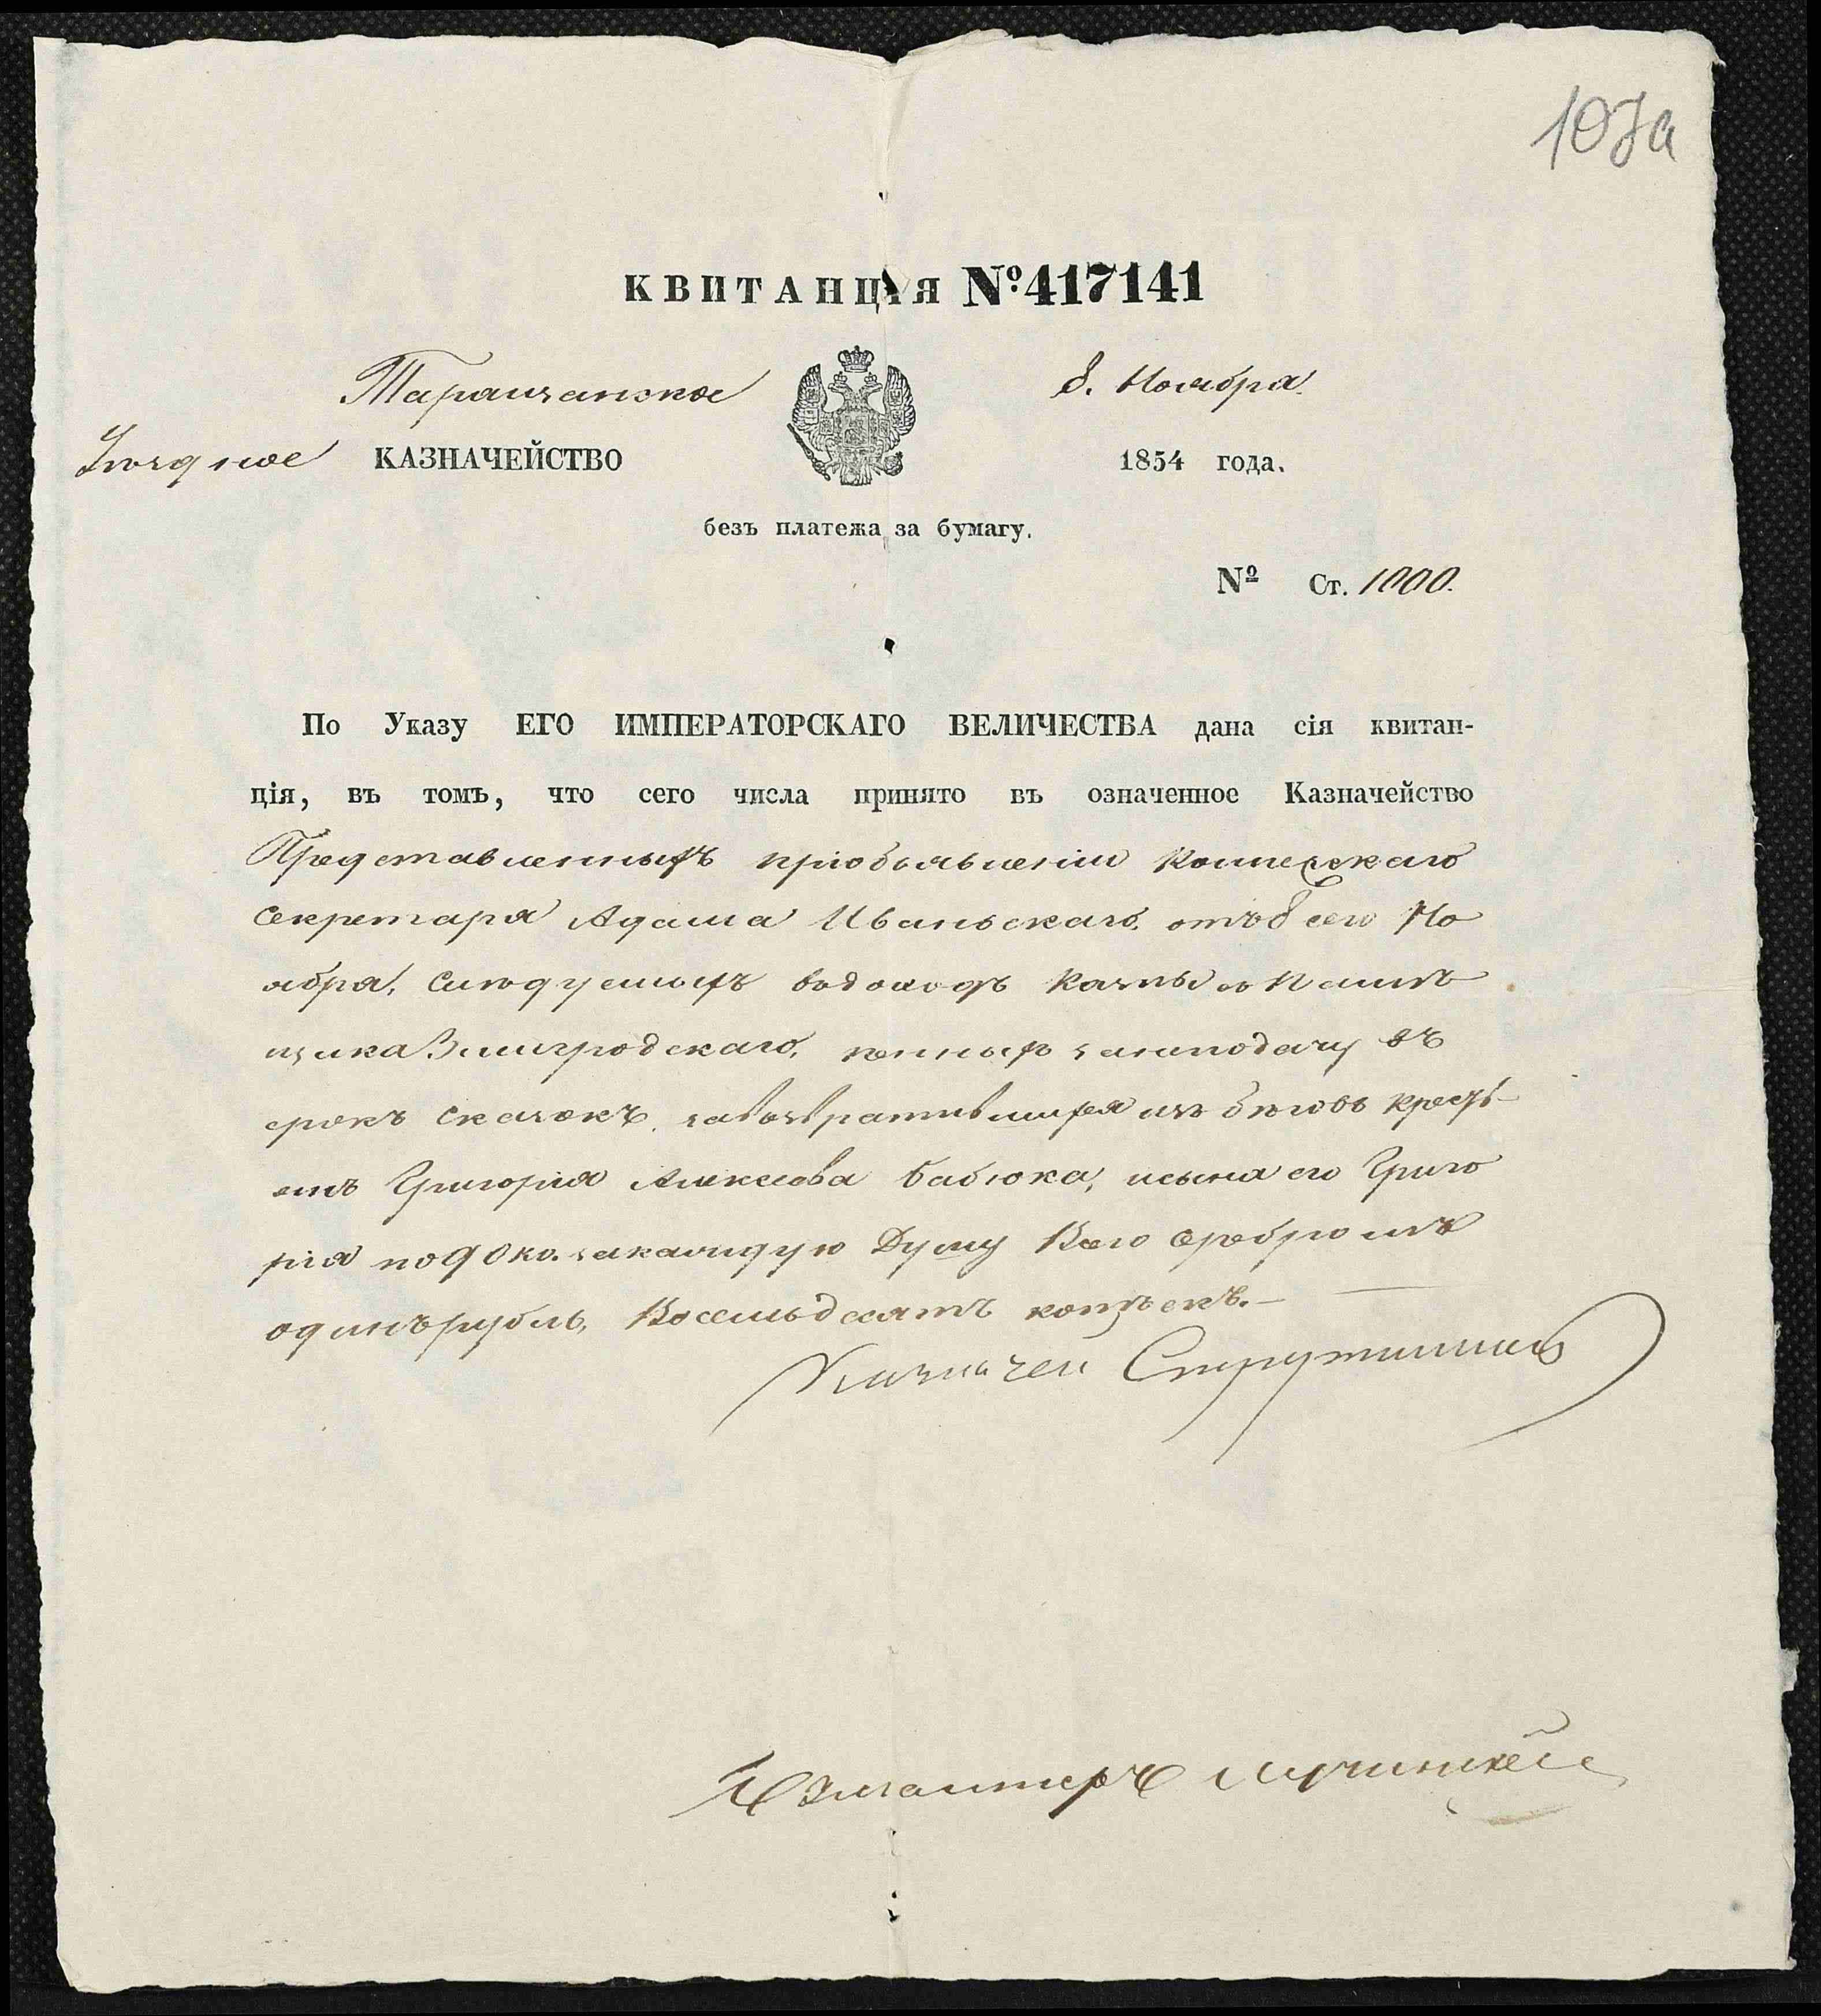 107а
КВИТАНЦІЯ №417141
Таращанское
8. Ноября
Уѣздное КАЗНАЧЕЙСТВО
1854 года.
безъ платежа за бумагу.
№ Ст. 1000.
По Указу ЕГО ИМПЕРАТОРСКАГО ВЕЛИЧЕСТВА дана сія квитан-
ція, въ томъ, что сего числа принято въ означенное Казначейство
Представленныхъ приобъявленіи Коллежскаго
Секретаря Адама Иваньскаго, отъ 8 сего Но
ября, Слѣдуемыхъ вдоходъ Казны съ Помѣ
щика Змигродскаго, пенныхъ занеподачу въ
срокъ сказокъ, завозвратившихся изъ бѣговъ кресть-
янъ Григорія Алексѣева Бабюка, исына его Григо
рія по 90 ко. закаждую Душу Всего Серебромъ
одинъ рубль, Восемьдесятъ копѣекъ.—
Казначей
Бухгалтеръ